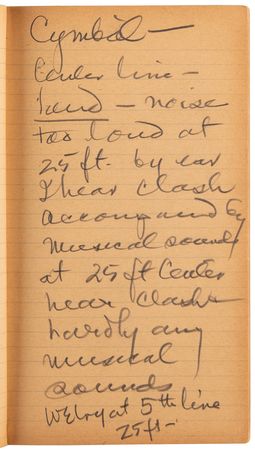 Cymbal —
Center line —
loud — noise
too loud at
25 ft. by ear
I hear clash
accompanied by
musical sounds
at 25 ft Center
hear Clash
hardly any
musical
sounds
at 5th line
25 ft —